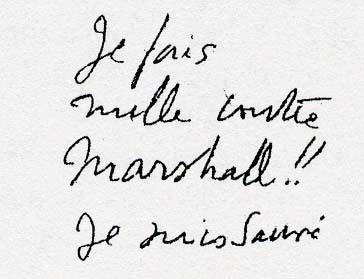 Je fais
mille contre
Marshall!!
Je suis Sauvé